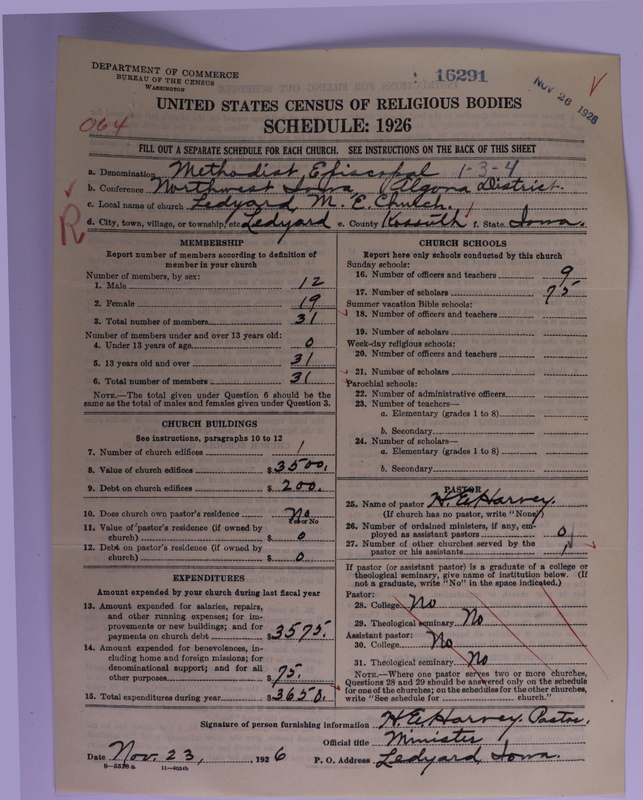 DEPARTMENT OF COMMERCE
BUREAU OF THE CENSUS
WASHINGTON
16291
NOV 26 1926
UNITED STATES CENSUS OF RELIGIOUS BODIES
064
SCHEDULE: 1926
FILL OUT A SEPARATE SCHEDULE FOR EACH CHURCH. SEE INSTRUCTIONS ON THE BACK OF THIS SHEET
a. Denomination Methodist Episcopal 1-3-4
b. Conference Northwest Iowa Algona District.
c. Local name of church Ledyard M. E. Church.
R
d. City, town, village, or township, etc Ledyard e. County Kossuth f. State Iowa.
MEMBERSHIP
Report number of members according to definition of member in your church
Number of members, by sex:
1. Male 12
2. Female 19
3. Total number of members 31
Number of members under and over 13 years old:
4. Under 13 years of age 0
5. 13 years old and over 31
6. Total number of members 31
NOTE.—The total given under Question 6 should be the same as the total of males and females given under Question 3.
CHURCH BUILDINGS
See instructions, paragraphs 10 to 12
7. Number of church edifices 1
8. Value of church edifices $3500.
9. Debt on church edifices $200.
10. Does church own pastor's residence No
Yes or No
11. Value of pastor's residence (if owned by
church) $ 0
12. Debt on pastor's residence (if owned by
church) $ 0
EXPENDITURES
Amount expended by your church during last fiscal year
13. Amount expended for salaries, repairs,
and other running expenses; for im-
provements or new buildings; and for
payments on church debt $3575.
14. Amount expended for benevolences, in-
cluding home and foreign missions; for
denominational support; and for all
other purposes $ 75.
15. Total expenditures during year $3650.
CHURCH SCHOOLS
Report here only schools conducted by this church
Sunday schools:
16. Number of officers and teachers 9
17. Number of scholars 75
Summer vacation Bible schools:
18. Number of officers and teachers
19. Number of scholars
Week-day religious schools:
20. Number of officers and teachers
21. Number of scholars
Parochial schools:
22. Number of administrative officers
23. Number of teachers—
a. Elementary (grades 1 to 8)
b. Secondary
24. Number of scholars—
a. Elementary (grades 1 to 8)
b. Secondary
PASTOR
25. Name of pastor H. E. Harvey.
(If church has no pastor, write "None")
26. Number of ordained ministers, if any, em-
ployed as assistant pastors 0
27. Number of other churches served by the
pastor or his assistants
If pastor (or assistant pastor) is a graduate of a college or
theological seminary, give name of institution below. (If
not a graduate, write "No" in the space indicated.)
Pastor:
28. College No
29. Theological seminary No
Assistant pastor:
30. College No
31. Theological seminary No
NOTE.—Where one pastor serves two or more churches,
Questions 28 and 29 should be answered only on the schedule
for one of the churches; on the schedules for the other churches,
write "See schedule for church."
Signature of person furnishing information H. E. Harvey. Pastor.
Official title Minister
Date Nov. 23, 1926 P. O. Address Ledyard Iowa.